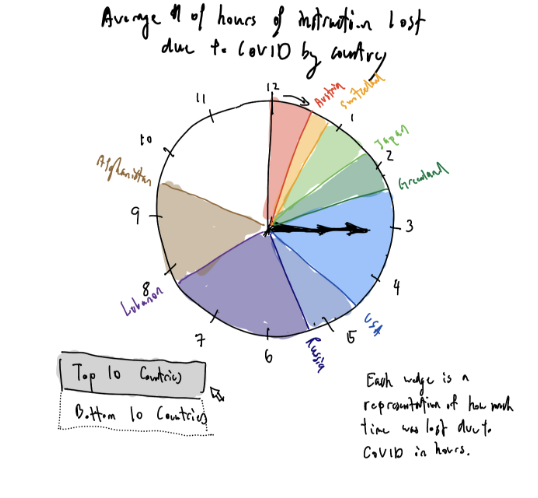 Average # of hours of instruction lost
due to COVID by country
12
Austria
Switzerland
1
Japan
2
Greenland
3
4
USA
5
Russia
6
7
Lebanon
8
9
Afghanistan
10
11
Top 10 Countries
Bottom 10 Countries
Each wedge is a
representation of how much
time was lost due to
COVID in hours.